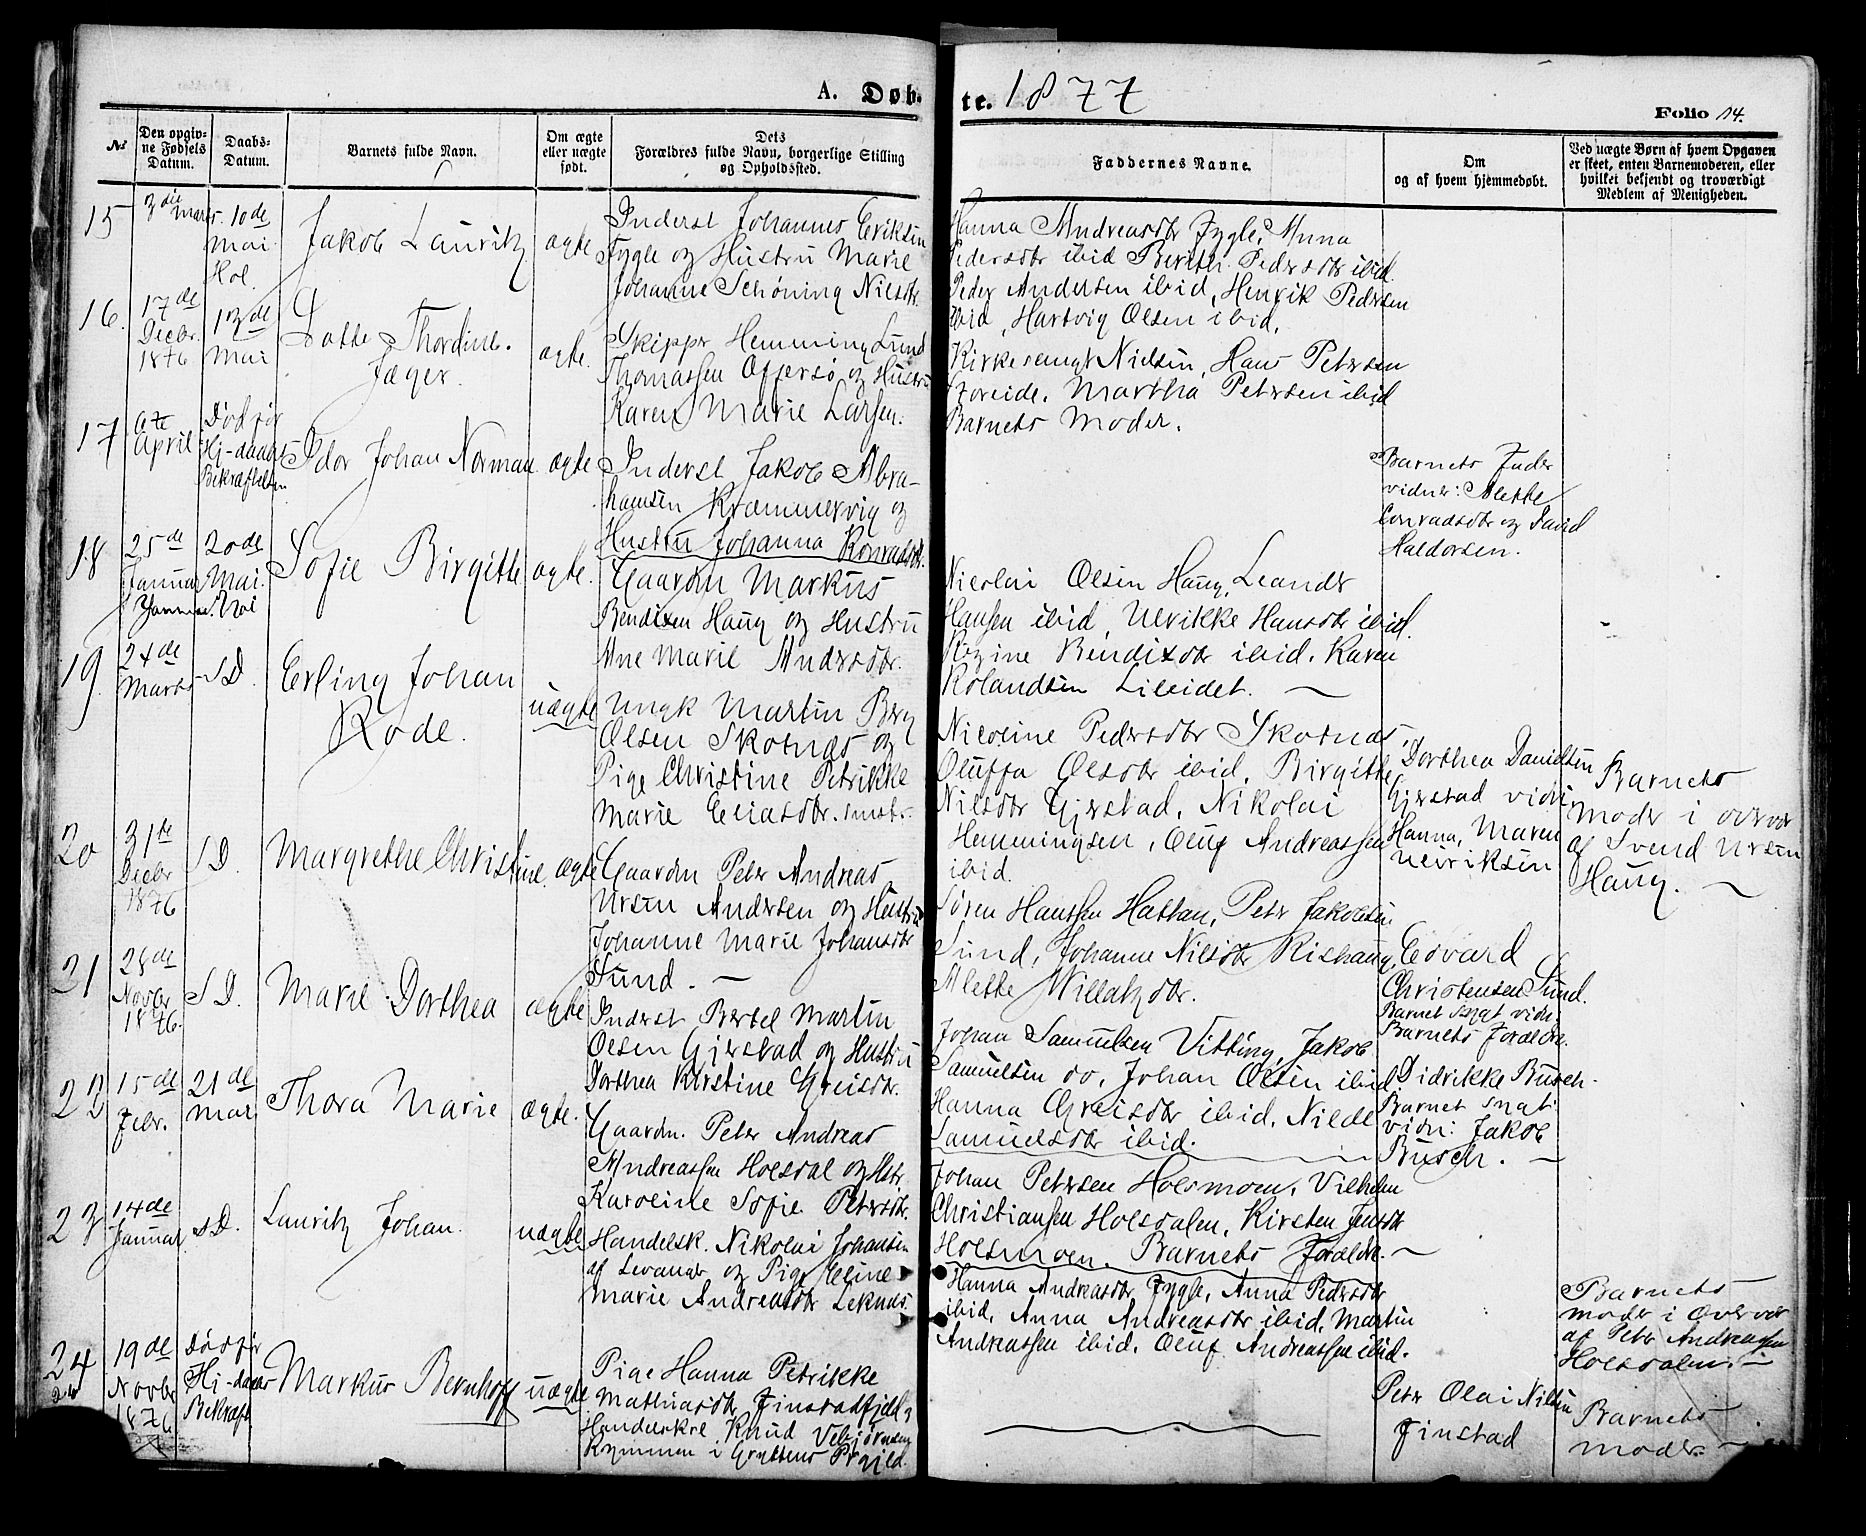 A. Døbte. 1877
Folio 14.
No
Den opgivne Fødsels Datum.
Daabs-Datum.
Barnets fulde Navn.
Om ægte eller uægte født.
Dets Forældres fulde Navn, borgerlige Stilling og Opholdssted.
Faddernes Navne.
Om og af hvem hjemmedøbt.
Ved uægte Børn af hvem Opgaven er skeet, enten Barnemoderen, eller hvilket bekjendt og troværdigt Medlem af Menigheden.
15
3die Marts.
10de
Mai.
Hol.
Jakob Lauritz
ægte
Inderst Johannes Eriksen
Fygle og Hustru Marie
Johanne Schøning Nilsdtr.
Hanna Andreasdtr Fygle, Anna
Pedersdtr ibid Bereth. Pedersdtr ibid.
Peder Andersen ibid, Henrik Pedersen
ibid, Hartvig Olsen ibid.
16.
17de
Decbr.
1876
13de
Mai
Lotte Thordine.
Jæger.
ægte.
Skipper Hemming Lund
Thomassen Offersø og Hustru
Karen Marie Larsen.
Kirkesangr Nielsen, Hans Petersen
Storeide, Martha Petersen ibid
Barnets Moder.
17
April
Død før
Hj-daabs
Bekræftelsen
Idor Johan Norman
ægte
Inderst Jakob Abra-
hamsen Kræmmervig og
Hustru Johanna Konradsdtr.
Barnets Fader
vidner: Alette
Conradsdtr og David
Haldorsen.
18
25de
Januar
Januar.
20de
Mai.
Hol
Sofie Birgitte
ægte.
Gaardm Markus
Bendixen Haug og Hustru
Ane Marie Andersdtr.
Nicolai Olsen Haug, Leander
Hansen ibid, Ulrikke Hansdtr ibid.
Regine Bendixdtr ibid. Karen
Rolandsen Lileidet.
19.
24de
Marts
SD.
Erling Johan
Rode.
uægte
Ungk Martin Berg
Olsen Skotnæs og
Pige Christine Petrikke
Marie Eliasdtr. smst.
Nicoline Pedersdtr Skotnæs,
Oluffa Olsdtr ibid, Birgitte
Nilsdtr Gjerstad, Nikolai
Hemmingsen, Oluf Andreassen
ibid.
Dorthea Davidsen
Gjerstad vidn:
Hanna, Maren
Ulriksen
Barnets
Moder i overvær
af Svend Ursin
Haug.
20
31te
Decbr
1876
SD.
Margrethe Christine.
ægte
Gaardm Peter Andreas
Ursin Andersen og Hustru
Johanne Marie Johansdtr
Sund.
Søren Hanssen Hattan, Petr Jakobsen
Sund, Johanne Nilsdtr Rishaug,
Alette Willatzdtr.
Edvard
Christensen Sund.
Barnet svagt vidn:
Barnets Forældre.
21
28de
Novbr
1876.
SD.
Marie Dorthea
ægte
Inderst Bertel Martin
Olsen Gjerstad og Hustru
Dorthea Kirstine Greisdtr.
Johan Samuelsen Vitting, Jakob
Samuelsen do, Johan Olsen ibid
Hanna Greisdtr ibid, Nilde
Samuelsdtr ibid.
Didrikke Busch.
Barnet svagt
vidn: Jakob
Busch.
22
15de
Febr.
21de
Mai
Thora Marie
ægte.
Gaardm. Peter Andreas
Andreassen Holsdal og Hstr.
Karoline Sofie Petersdtr.
Johan Petersen Holsmoen, Vilhelm
Christiansen Holsdalen, Kirsten Jensdtr
Holsmoen. Barnets Forældre.
23
14de
Januar
SD.
Lauritz Johan.
uægte
Handelsk. Nikolai Johansen
af Levanger og Pige Eline
Marie Andreasdtr Leknæs.
Hanna Andreasdtr Fygle, Anna Pedersdtr
ibid, Anna Andreasdtr ibid, Martin
Andreassen ibid, Oluf Andreassen ibid.
Barnets
Moder i Overvær
af Petr Andreassen
Holsdalen.
24
19de
Novbr
1876
Død før
Hj-daabs
Bekræft
Markus Bernhoff
uægte
Pige Hanna Petrikke
Mathiasdtr Finstadfjeld,
Handelskrl. Knud Vebjørnsen
i Gryttens Prgjld.
Petr Olai Nilsen
Finstad
Barnets
Moder.